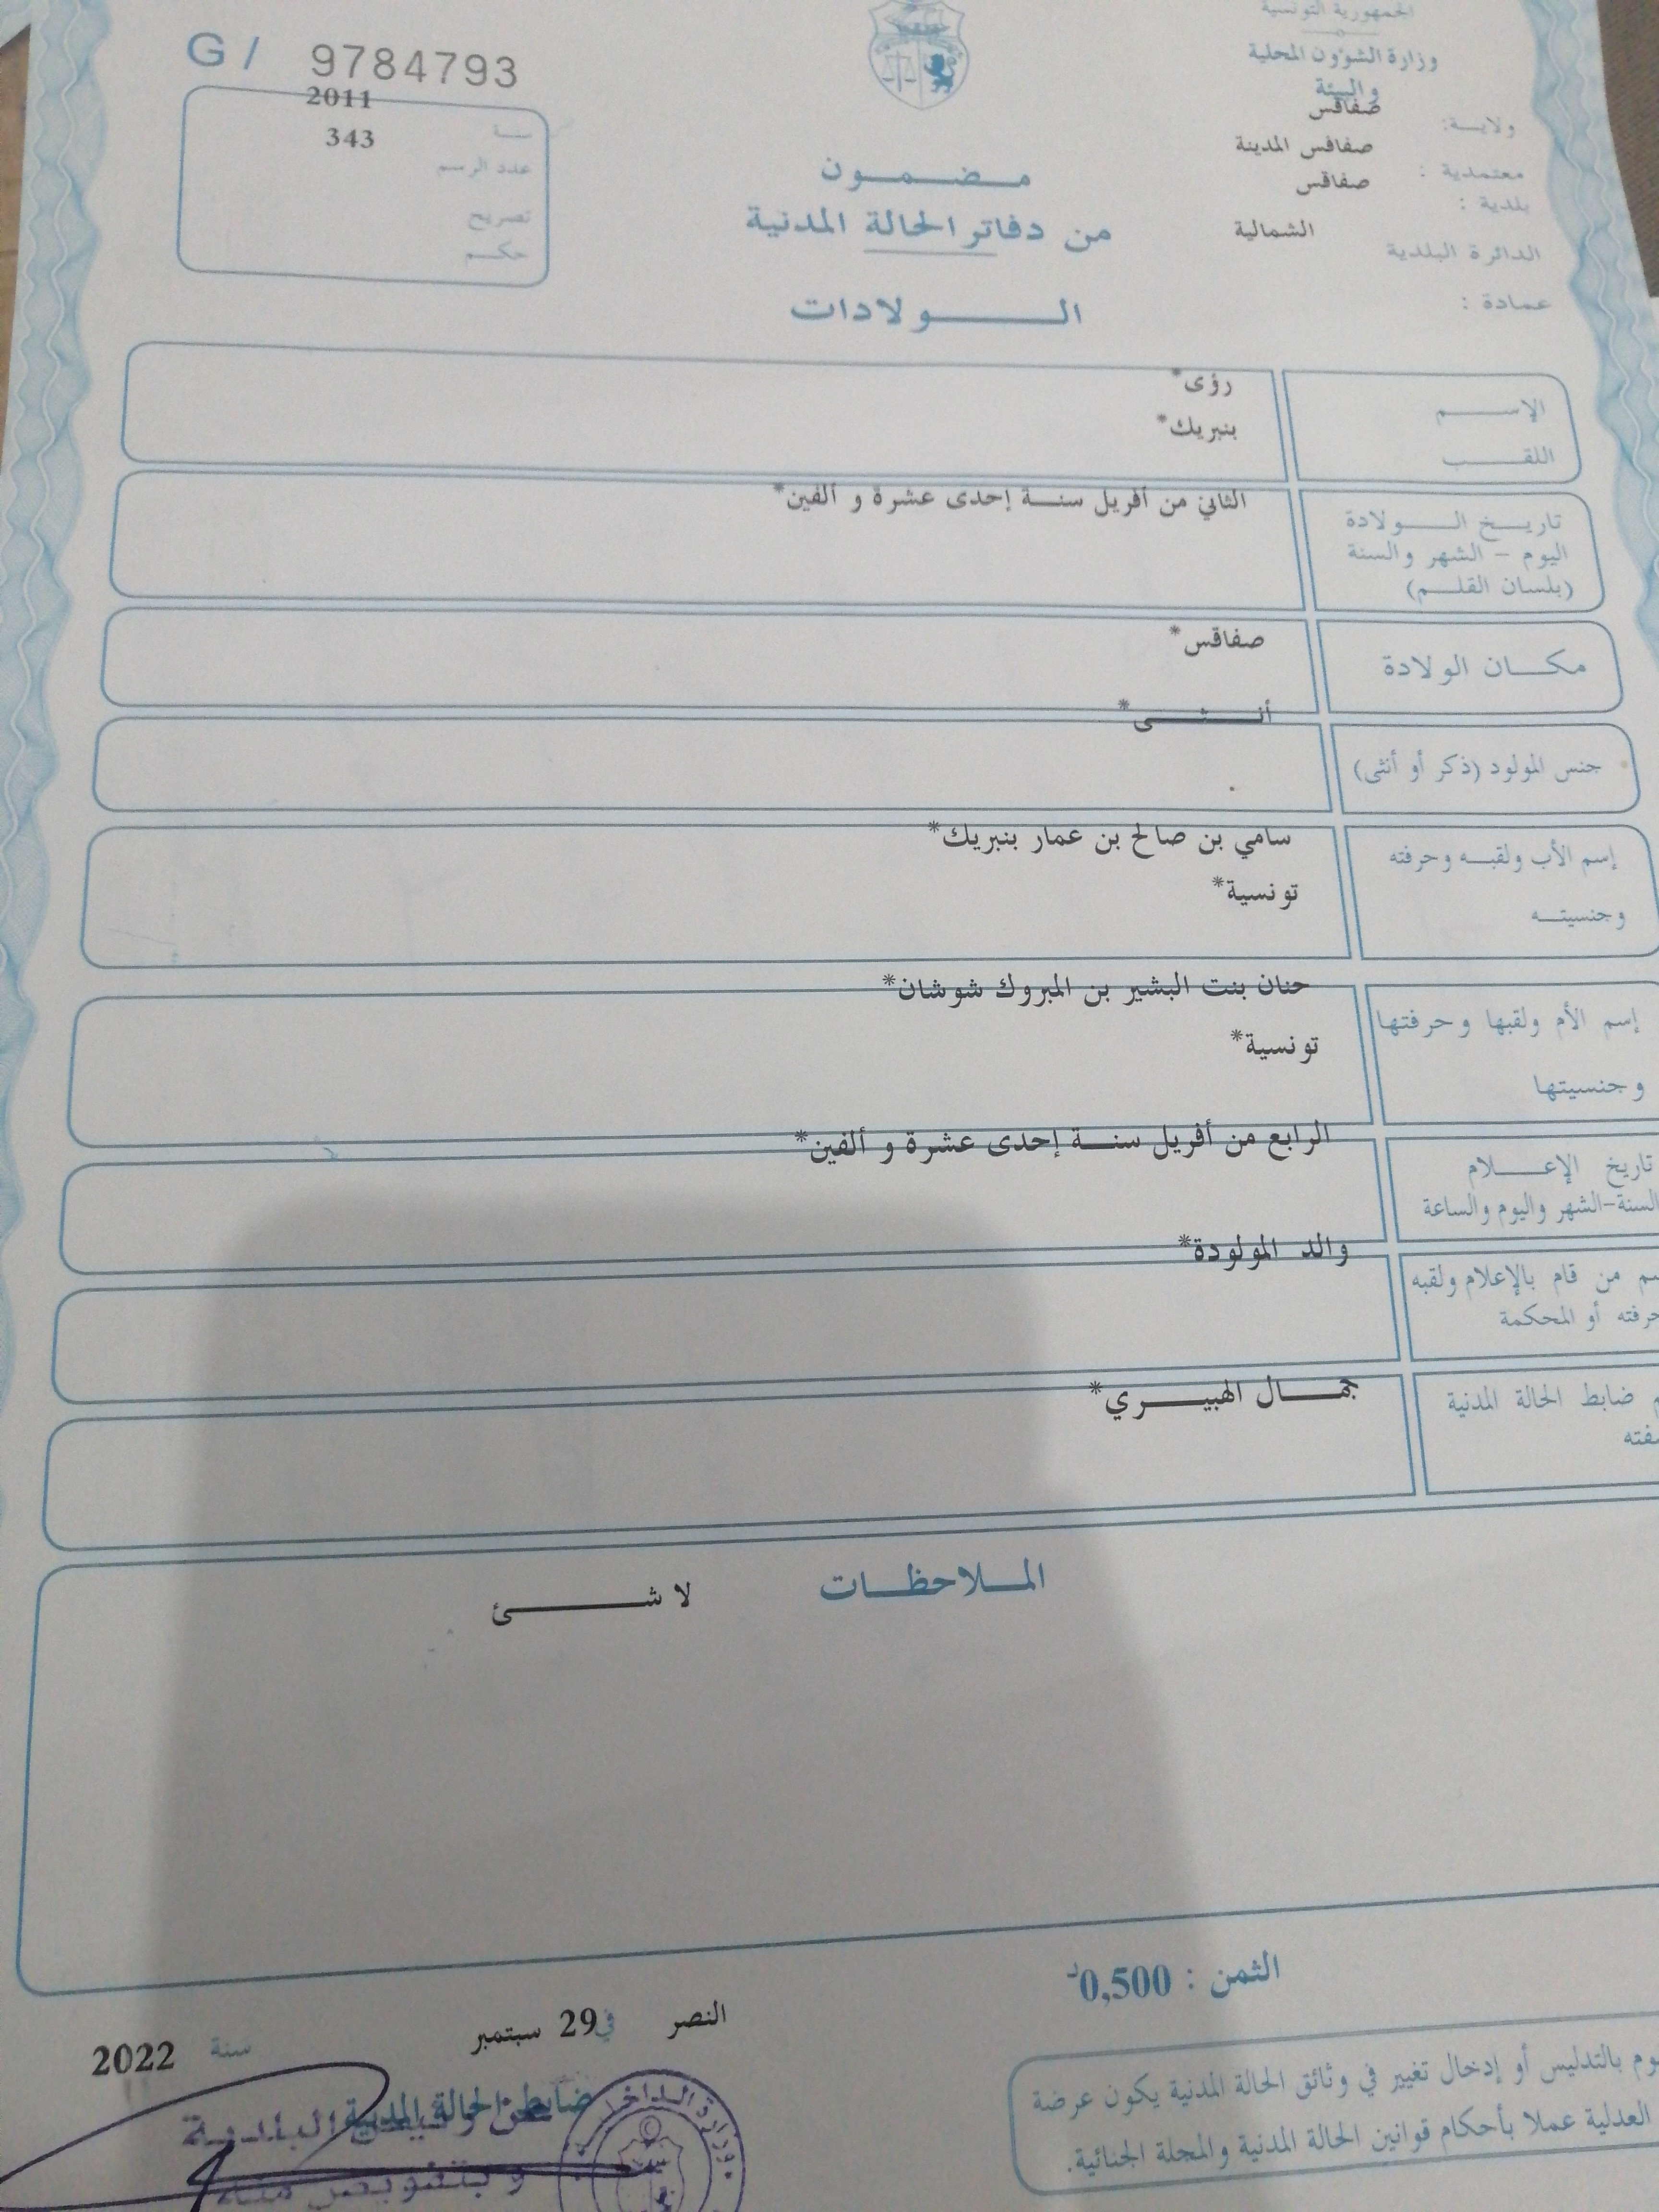 الجمهورية التونسية
وزارة الشؤون المحلية
والبيئة
ولاية: صفاقس
معتمدية : صفاقس المدينة
بلدية : صفاقس
الدائرة البلدية الشمالية
عمادة :
G / 9784793
سنة 2011
عدد الرسم 343
تصريح
حكم
مضمون
من دفاتر الحالة المدنية
الولادات
الإسم رؤى*
اللقب بنبريك*
تاريخ الولادة الثاني من أفريل سنة إحدى عشرة و ألفين*
اليوم - الشهر والسنة
(بلسان القلم)
مكان الولادة صفاقس*
جنس المولود (ذكر أو أنثى) أنثى*
إسم الأب ولقبه وحرفته سامي بن صالح بن عمار بنبريك*
وجنسيته تونسية*
إسم الأم ولقبها وحرفتها حنان بنت البشير بن المبروك شوشان*
وجنسيتها تونسية*
تاريخ الإعلام الرابع من أفريل سنة إحدى عشرة و ألفين*
السنة-الشهر واليوم والساعة
من قام بالإعلام ولقبه والد المولودة*
أو المحكمة
ضابط الحالة المدنية جمال الهبيري*
الملاحظات لا شئ
الثمن : 0,500د
النصر في 29 سبتمبر سنة 2022
ضابط الحالة المدنية
البلدية
وبتفويض منه
وزارة الداخلية
بالتدليس أو إدخال تغيير في وثائق الحالة المدنية يكون عرضة
العدلية عملا بأحكام قوانين الحالة المدنية والمجلة الجنائية.